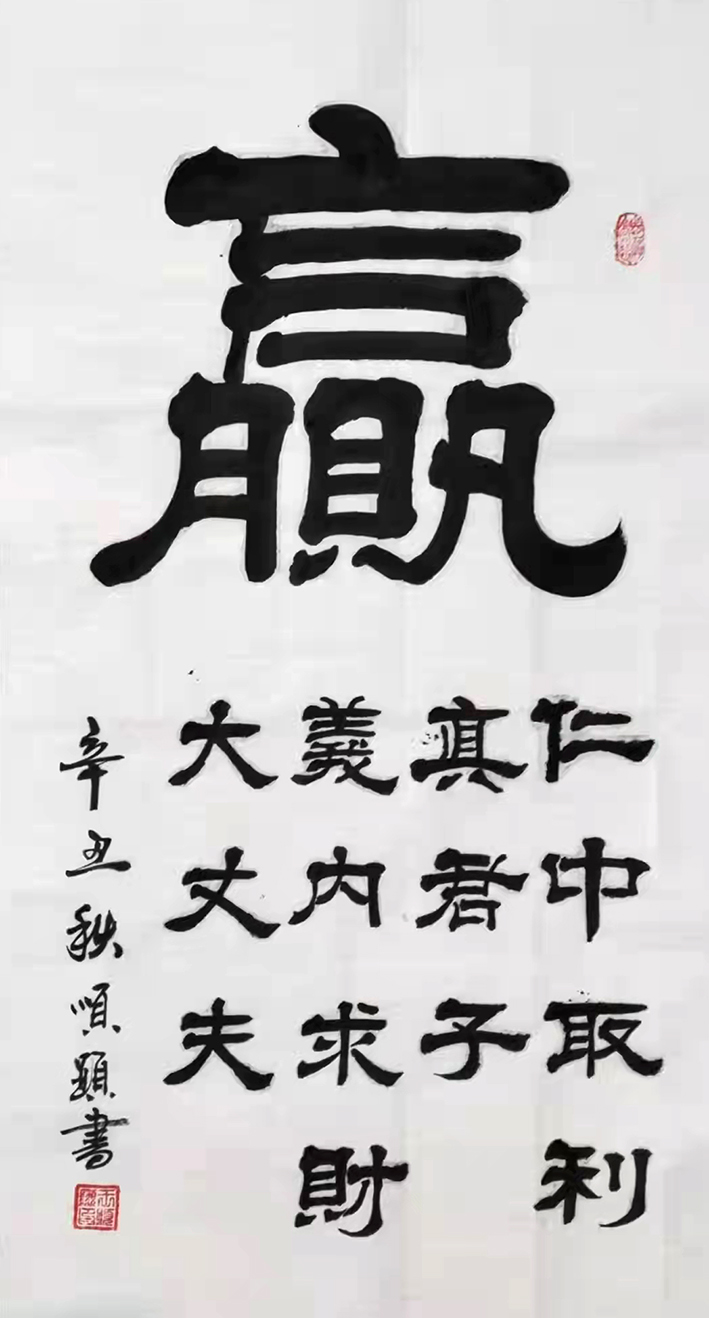 贏
仁中取利
真君子
義内求財
大丈夫
辛丑秋順顕書